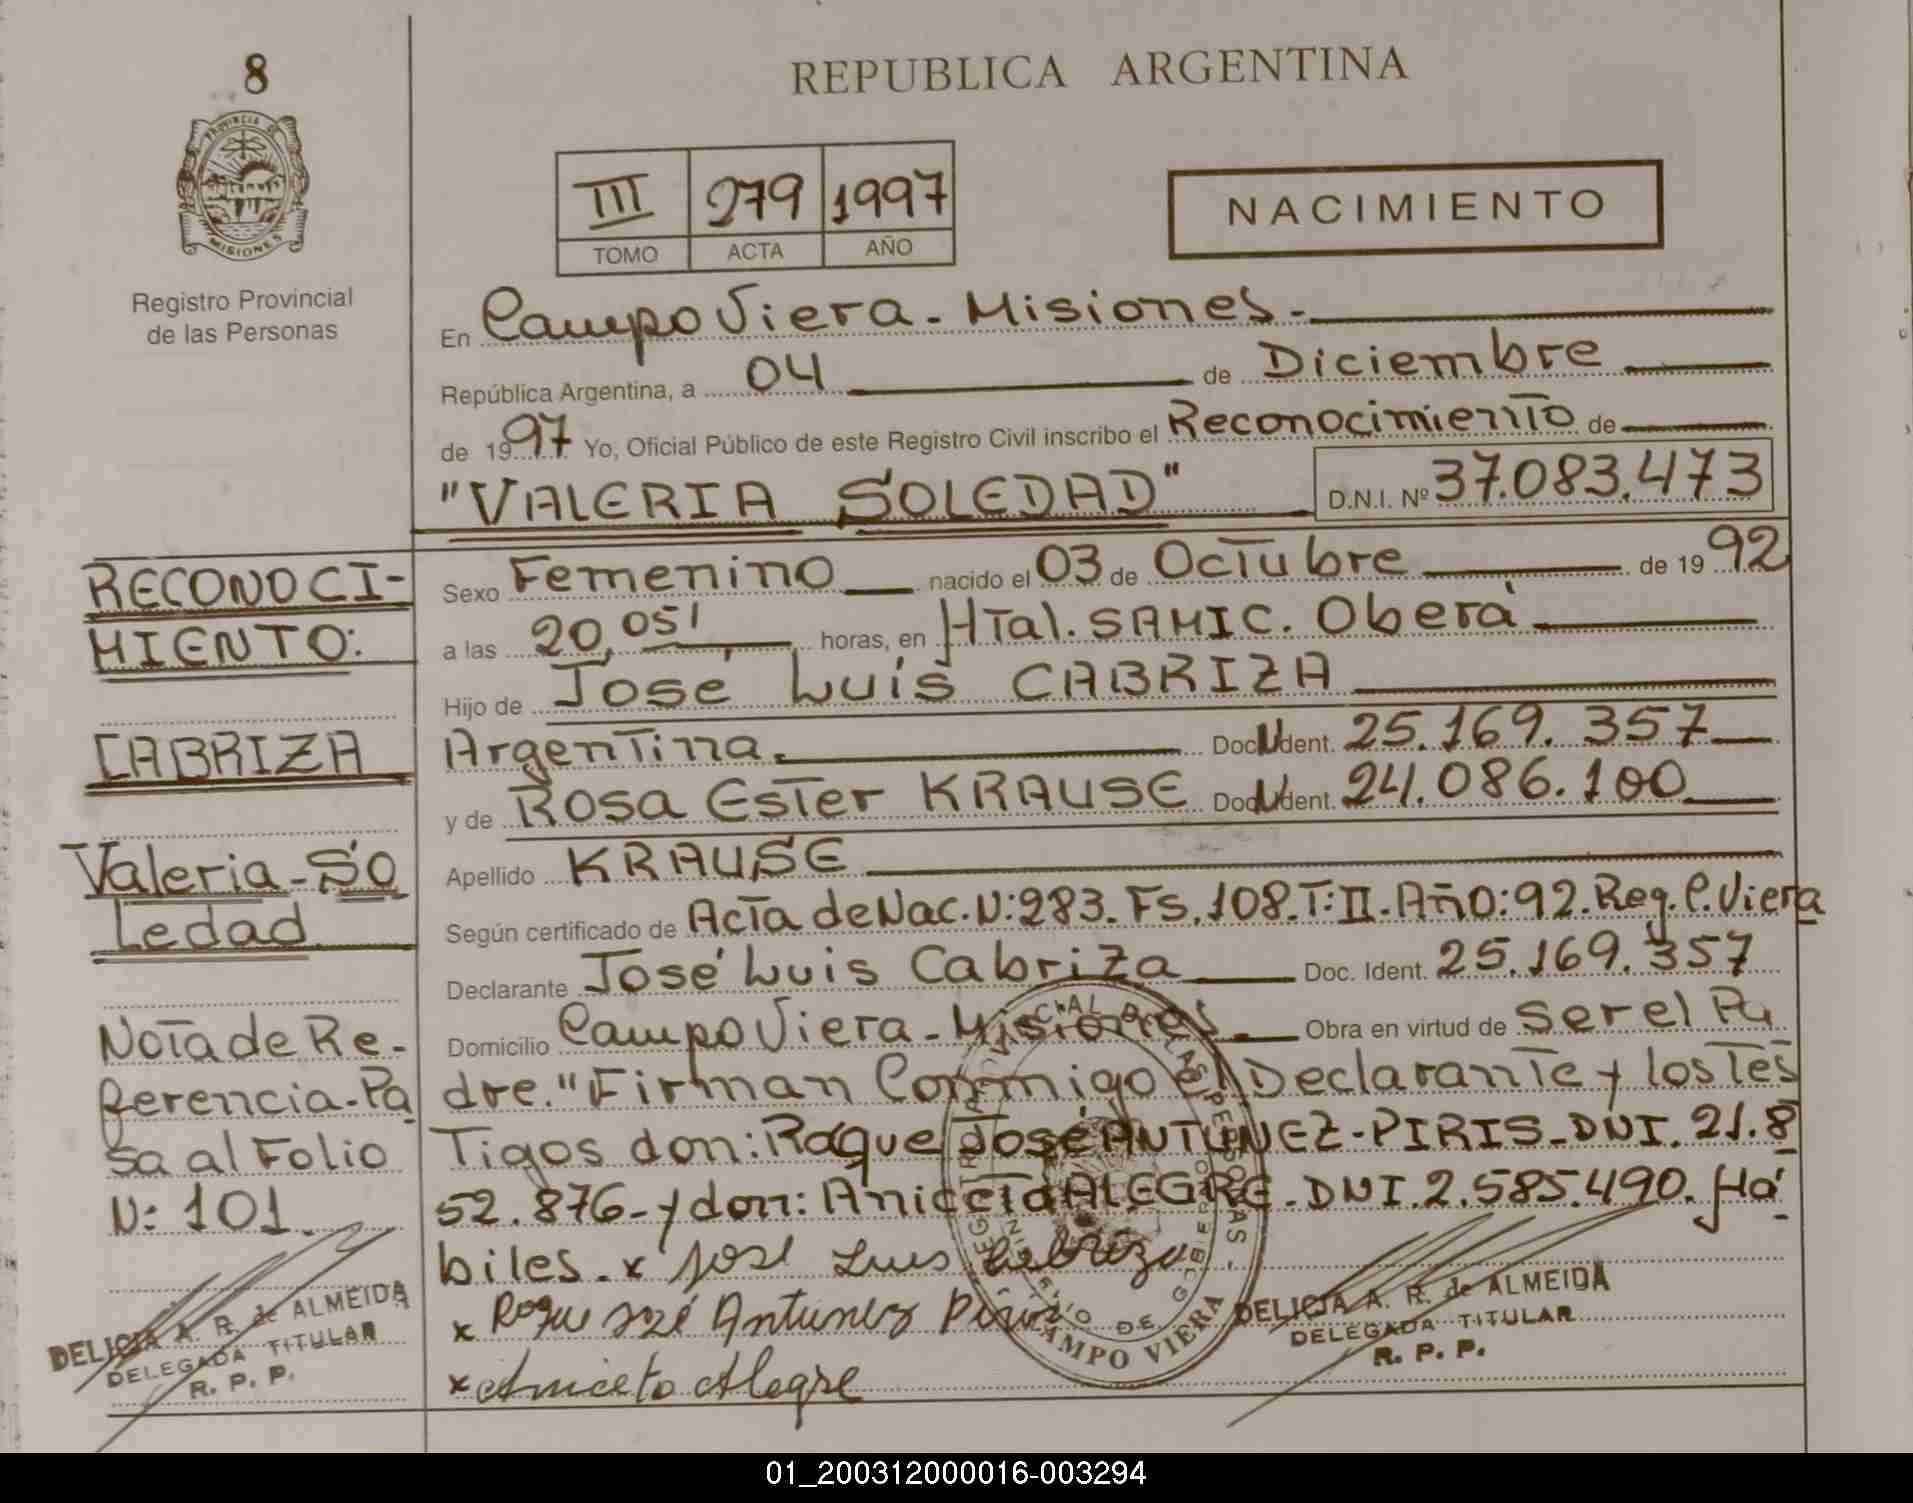 8
REPUBLICA ARGENTINA
PROVINCIA DE
MISIONES
Registro Provincial
de las Personas
III 279 1997
TOMO ACTA AÑO
NACIMIENTO
En Campo Viera - Misiones.-
República Argentina, a 04 de Diciembre
de 1997 Yo, Oficial Público de este Registro Civil inscribo el Reconocimiento de
"VALERIA SOLEDAD" D.N.I. Nº 37.083.473
Sexo Femenino nacido el 03 de Octubre de 1992
a las 20,05' horas, en Htal. SAMIC. Oberá
Hijo de José Luis CABRIZA
Argentina. Doc. Ident. 25.169.357
y de Rosa Ester KRAUSE Doc. Ident. 24.086.100
Apellido KRAUSE
Según certificado de Acta de Nac. N:283. Fs.108.T:II.Año:92.Reg.C.Viera
Declarante José Luis Cabriza Doc. Ident. 25.169.357
Domicilio Campo Viera - Misiones Obra en virtud de ser el Pa
dre." Firman Conmigo el Declarante y los Tes
Tigos don: Roque José ANTUNEZ-PIRIS-DNI.21.8
52.876-y don: Aniceto ALEGRE-DNI.2.585.490. Há
biles. x José Luis Cabriza
x Roque José Antunez Piris
x Aniceto Alegre
RECONOCI-
MIENTO:
CABRIZA
Valeria-So
Ledad
Nota de Re-
ferencia-Pa
sa al Folio
N: 101
DELICIA A. R. de ALMEIDA
DELEGADA TITULAR
R. P. P.
REGISTRO PROVINCIAL DE LAS PERSONAS -
MINISTERIO DE GOBIERNO
CAMPO VIERA
DELICIA A. R. de ALMEIDA
DELEGADA TITULAR
R. P. P.
01_200312000016-003294